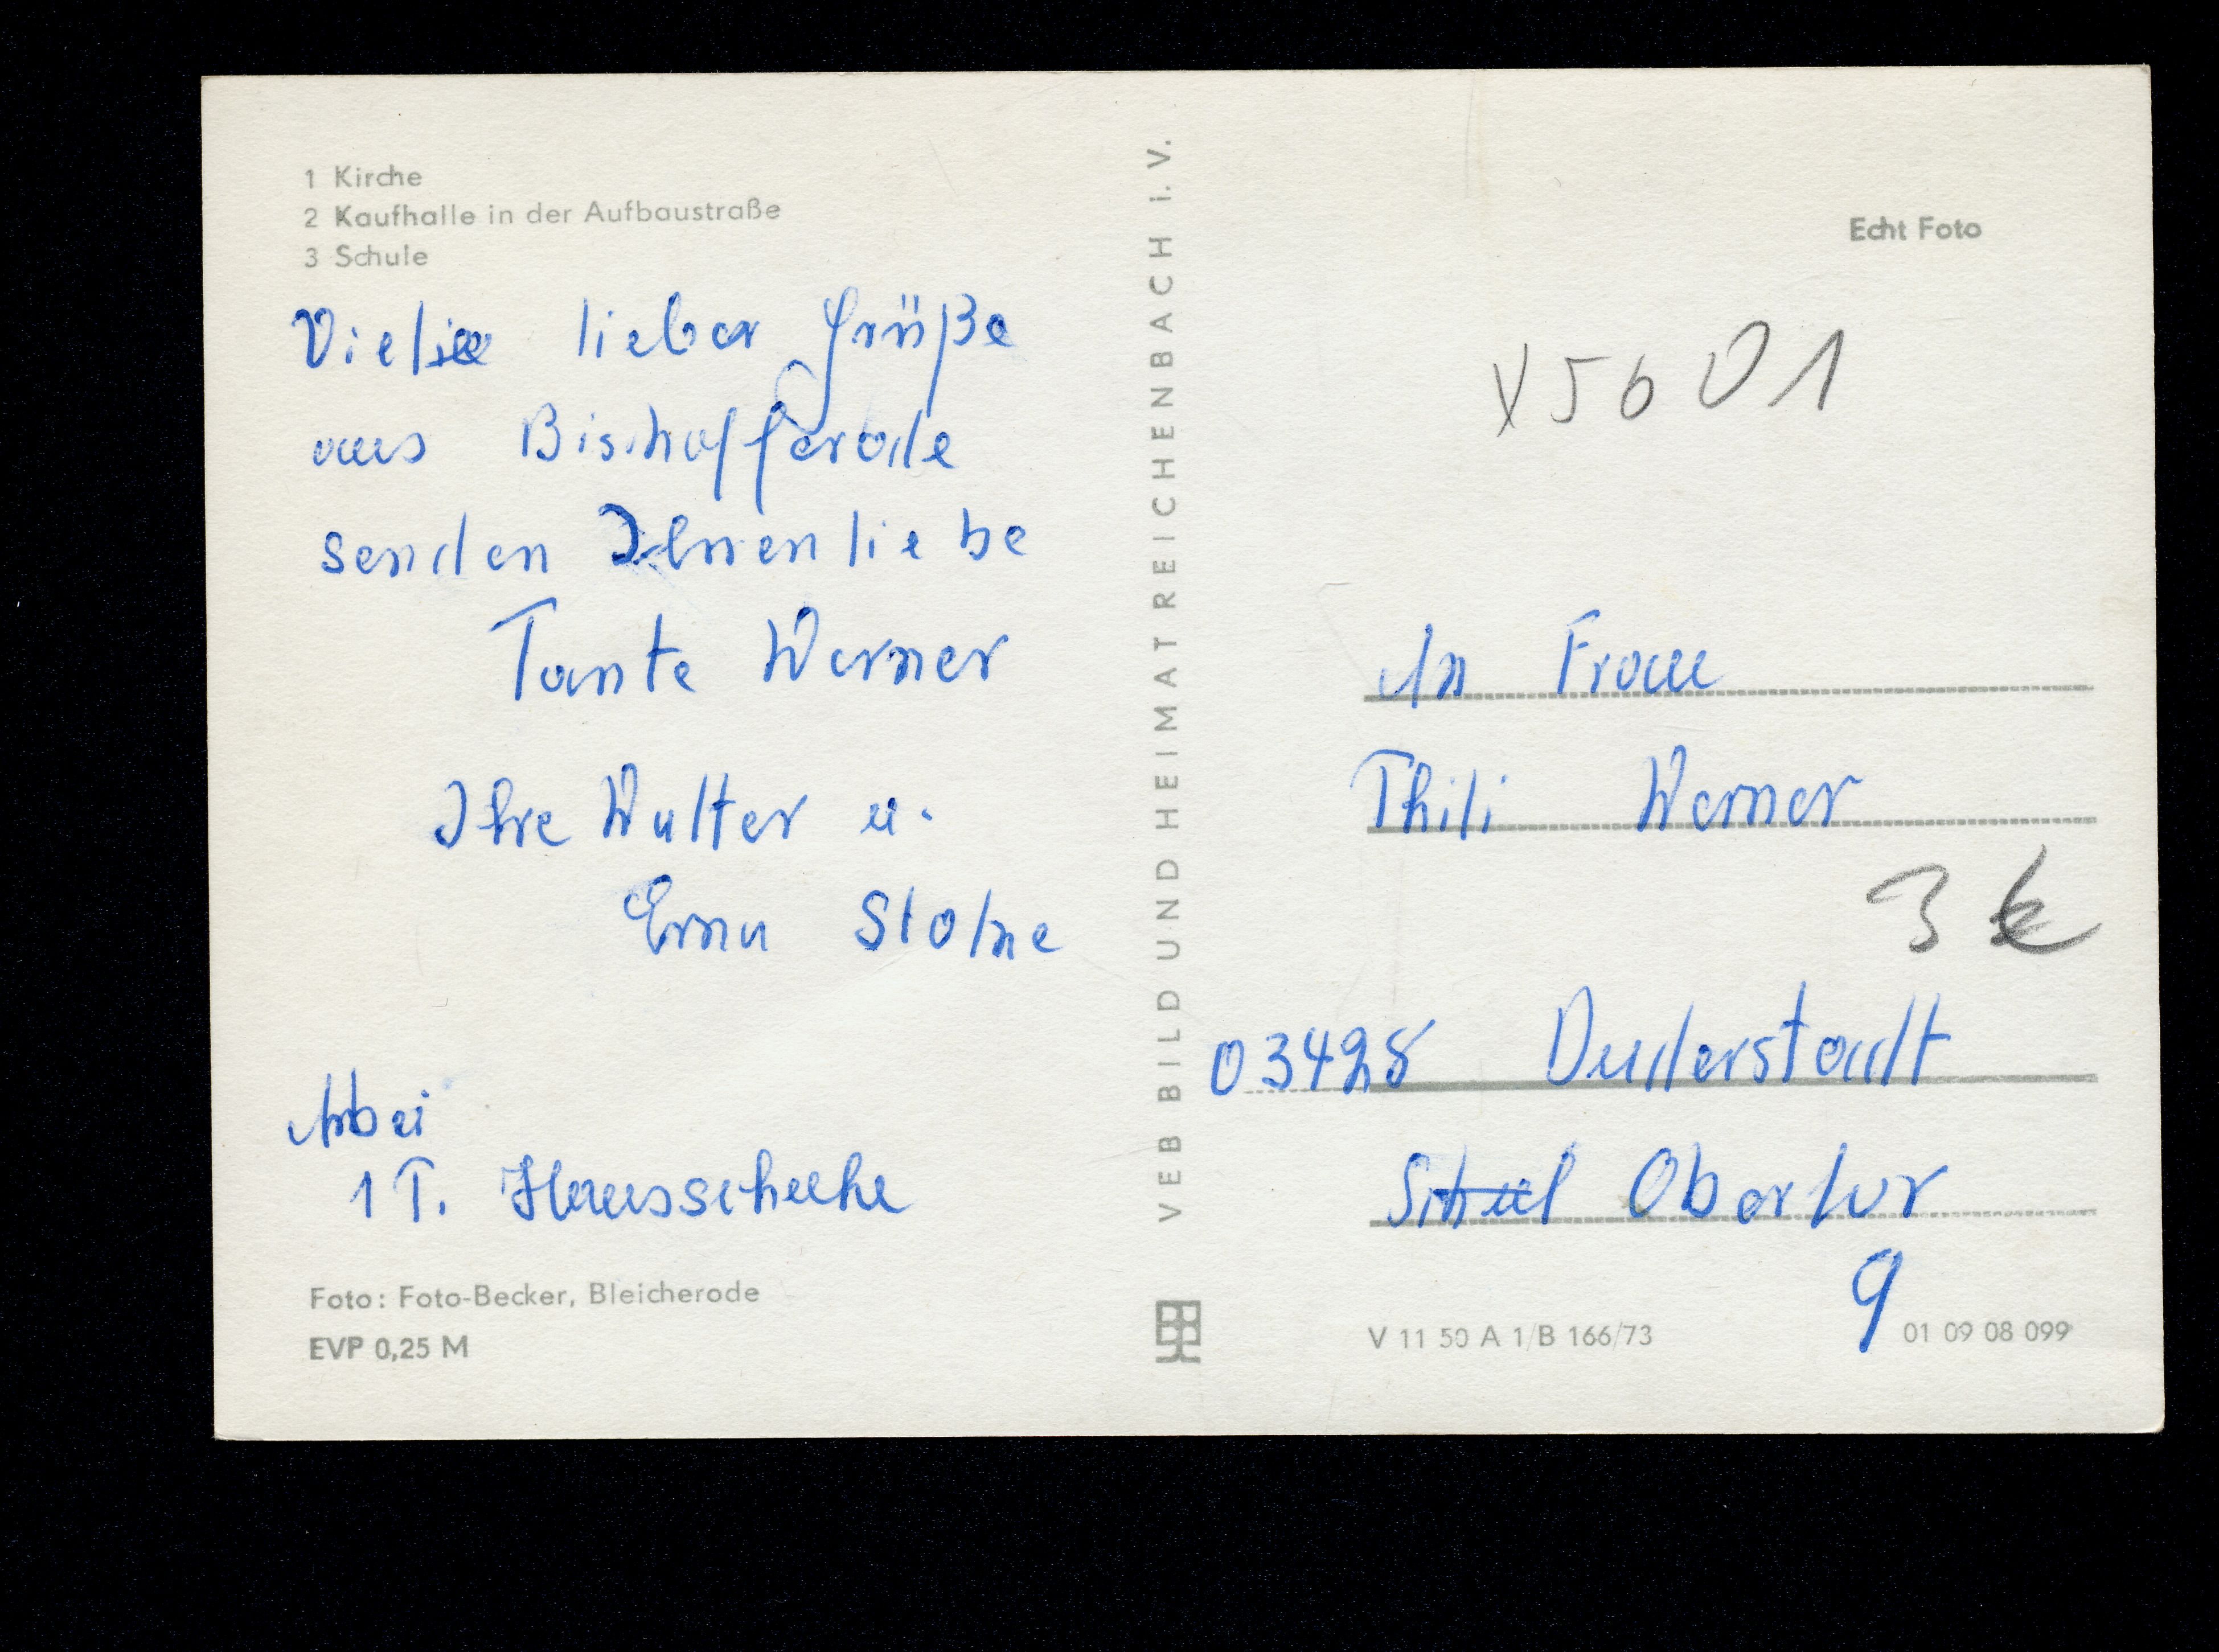 1 Kirche
2 Kaufhalle in der Aufbaustraße
3 Schule
Viele lieber Grüße
aus Bischofferode
senden Ihnen liebe
Tante Werner
Ihre Walter u.
Erna
Anbei
1 T. Hausschuhe
Foto: Foto-Becker, Bleicherode
EVP 0,25 M
VEB BILD UND HEIMAT REICHENBACH i. V.
Echt Foto
X5601
An Frau
Thili Werner
3 €
03428 Duderstadt
Obertor
9
V 11 50 A 1/B 166/73
01 09 08 099